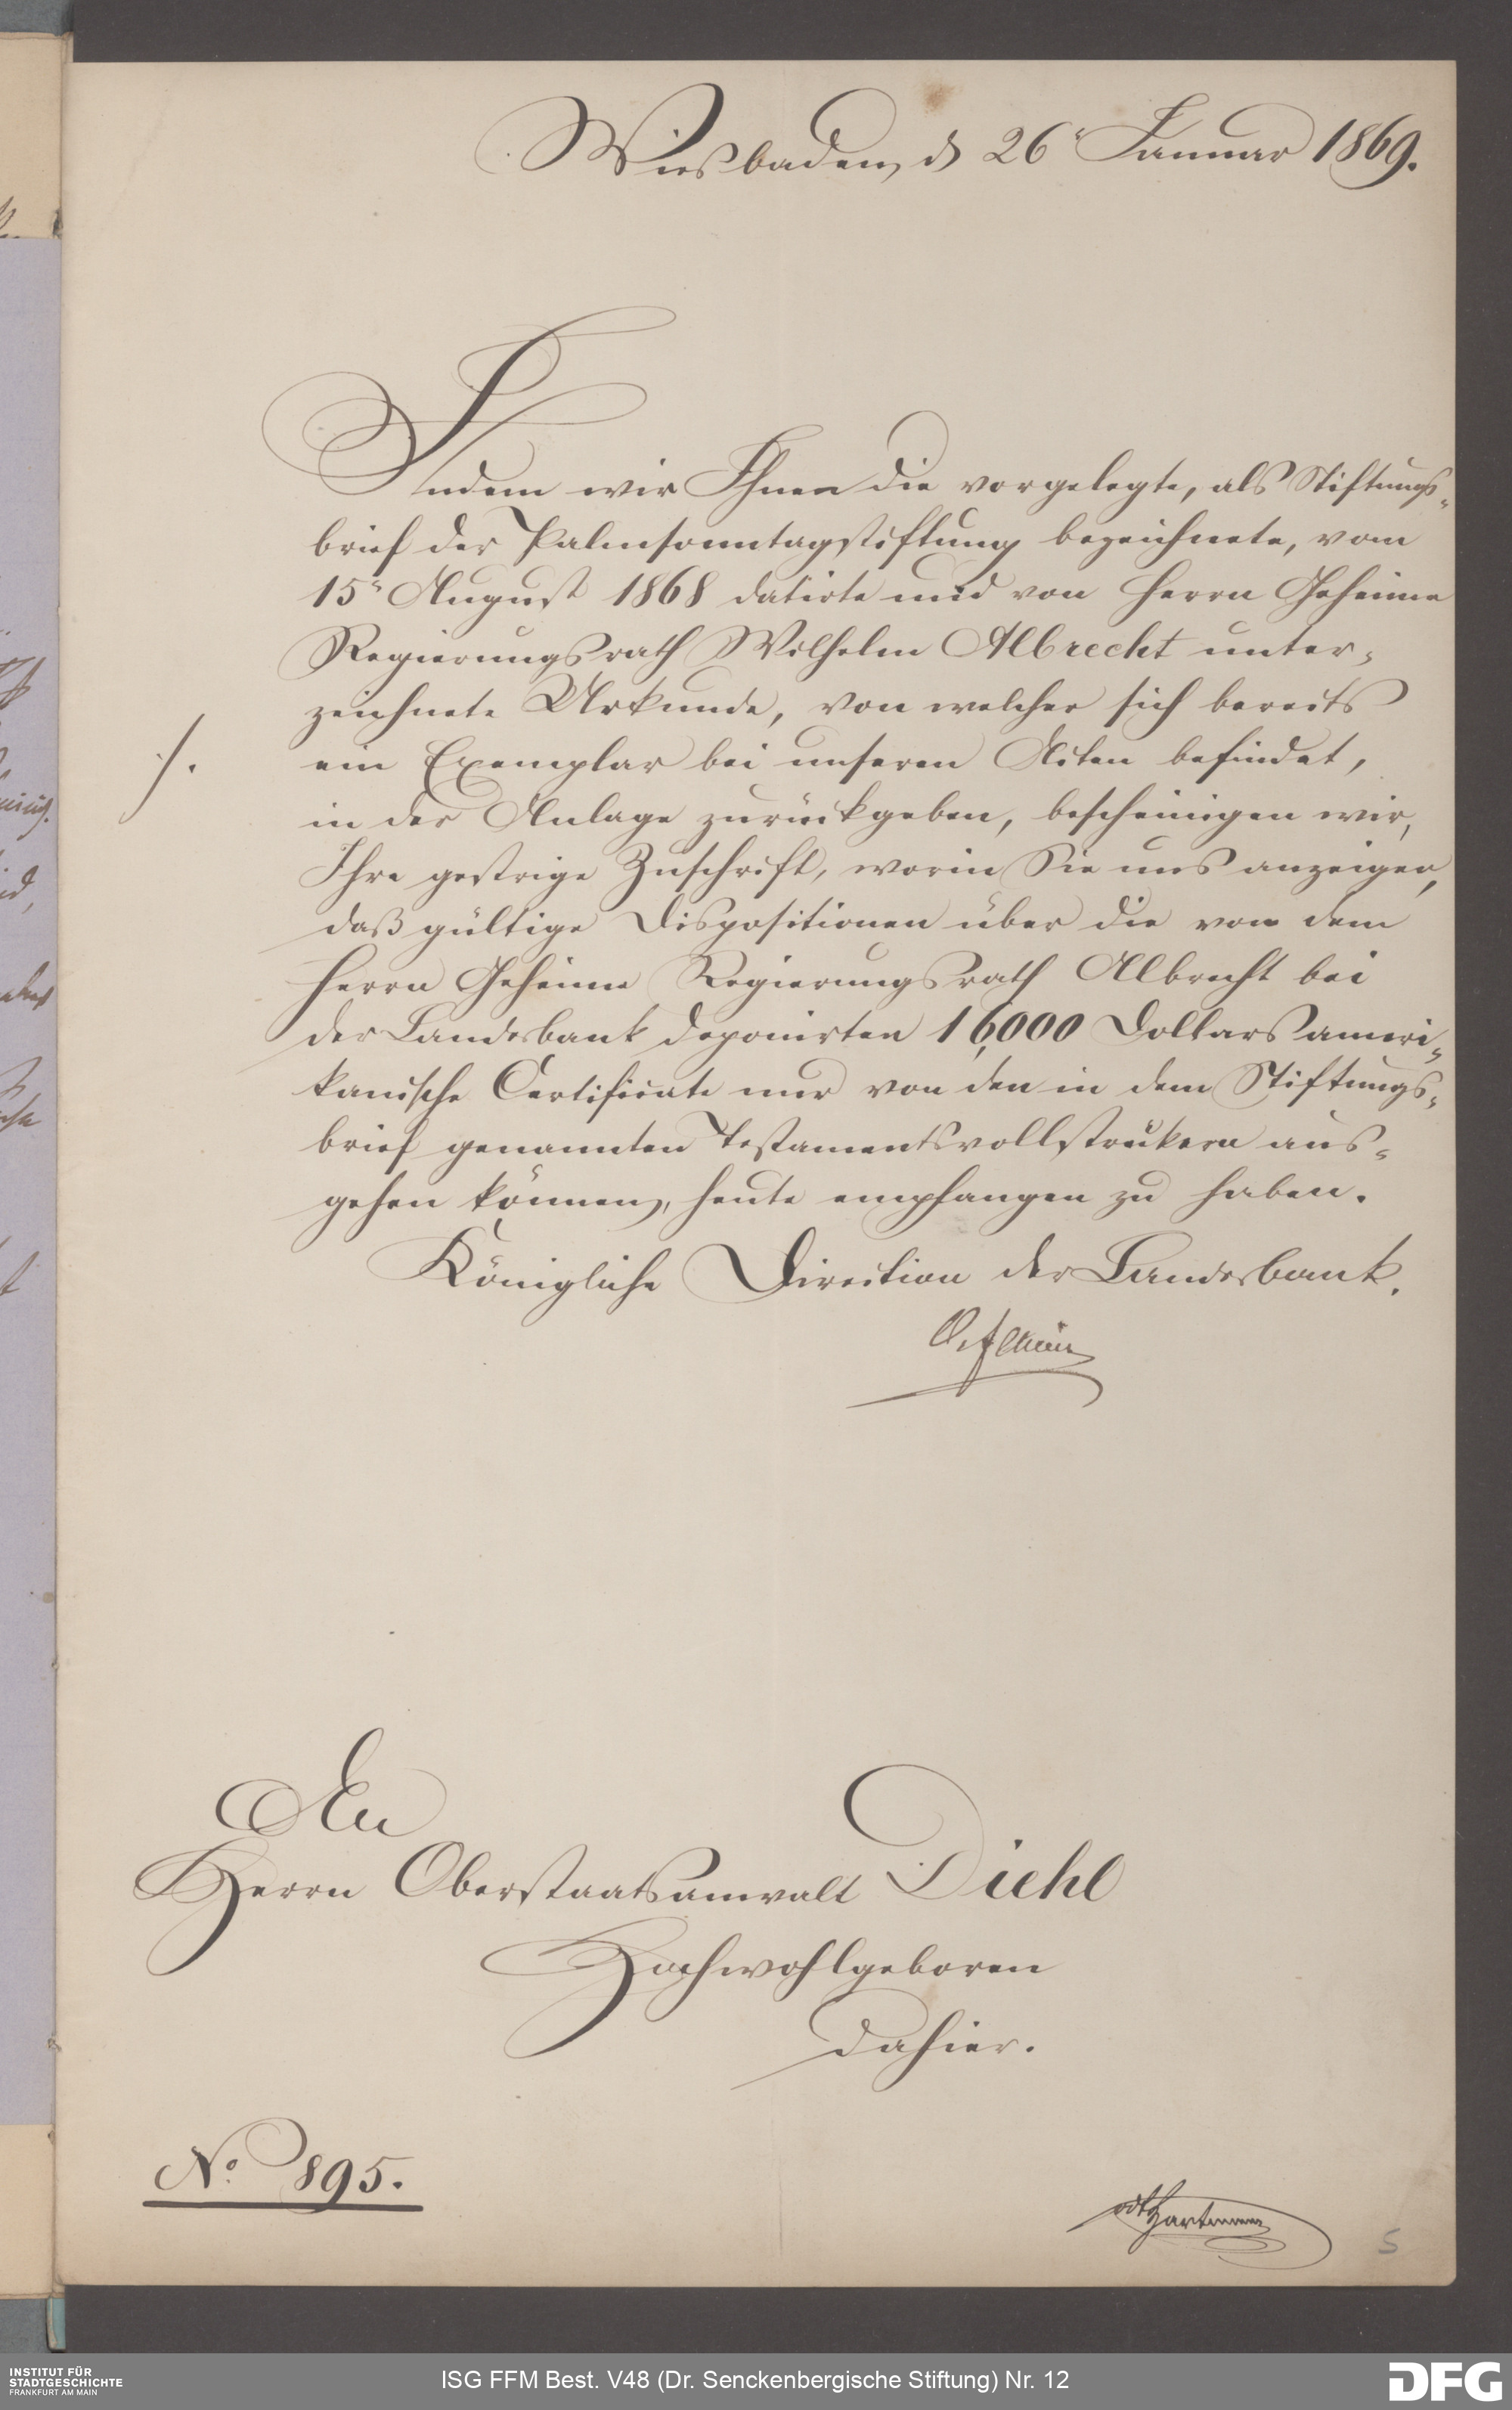 Wiesbaden, d 26' Januar 1869.
Indem wir Ihnen die vorgelegte, als Stiftungs-
brief der Palmsonntagstiftung bezeichnete, vom
15' August 1868 datirte und von Herrn Geheime
Regierungsrath Wilhelm Albrecht unter-
zeichnete Urkunde, von welcher sich bereits
/.
ein Exemplar bei unseren Akten befindet,
in der Anlage zurückgeben, bescheinigen wir,
Ihre gestrige Zuschrift, worin Sie uns anzeigen,
daß gültige Dispositionen über die von dem
Herrn Geheime Regierungsrath Albrecht bei
der Landesbank deponirten 16,000 Dollars ameri-
kanische Certificate nur von den in dem Stiftungs-
brief genannten Testamentsvollstreckern aus-
gehen können, heute empfangen zu haben.
Königliche Direction der Landesbank.
An
Herrn Oberstaatsanwalt Diehl
Hochwohlgeboren
dahier.
No. 895.
Hartmann
5
INSTITUT FÜR
STADTGESCHICHTE
FRANKFURT AM MAIN
ISG FFM Best. V48 (Dr. Senckenbergische Stiftung) Nr. 12
DFG